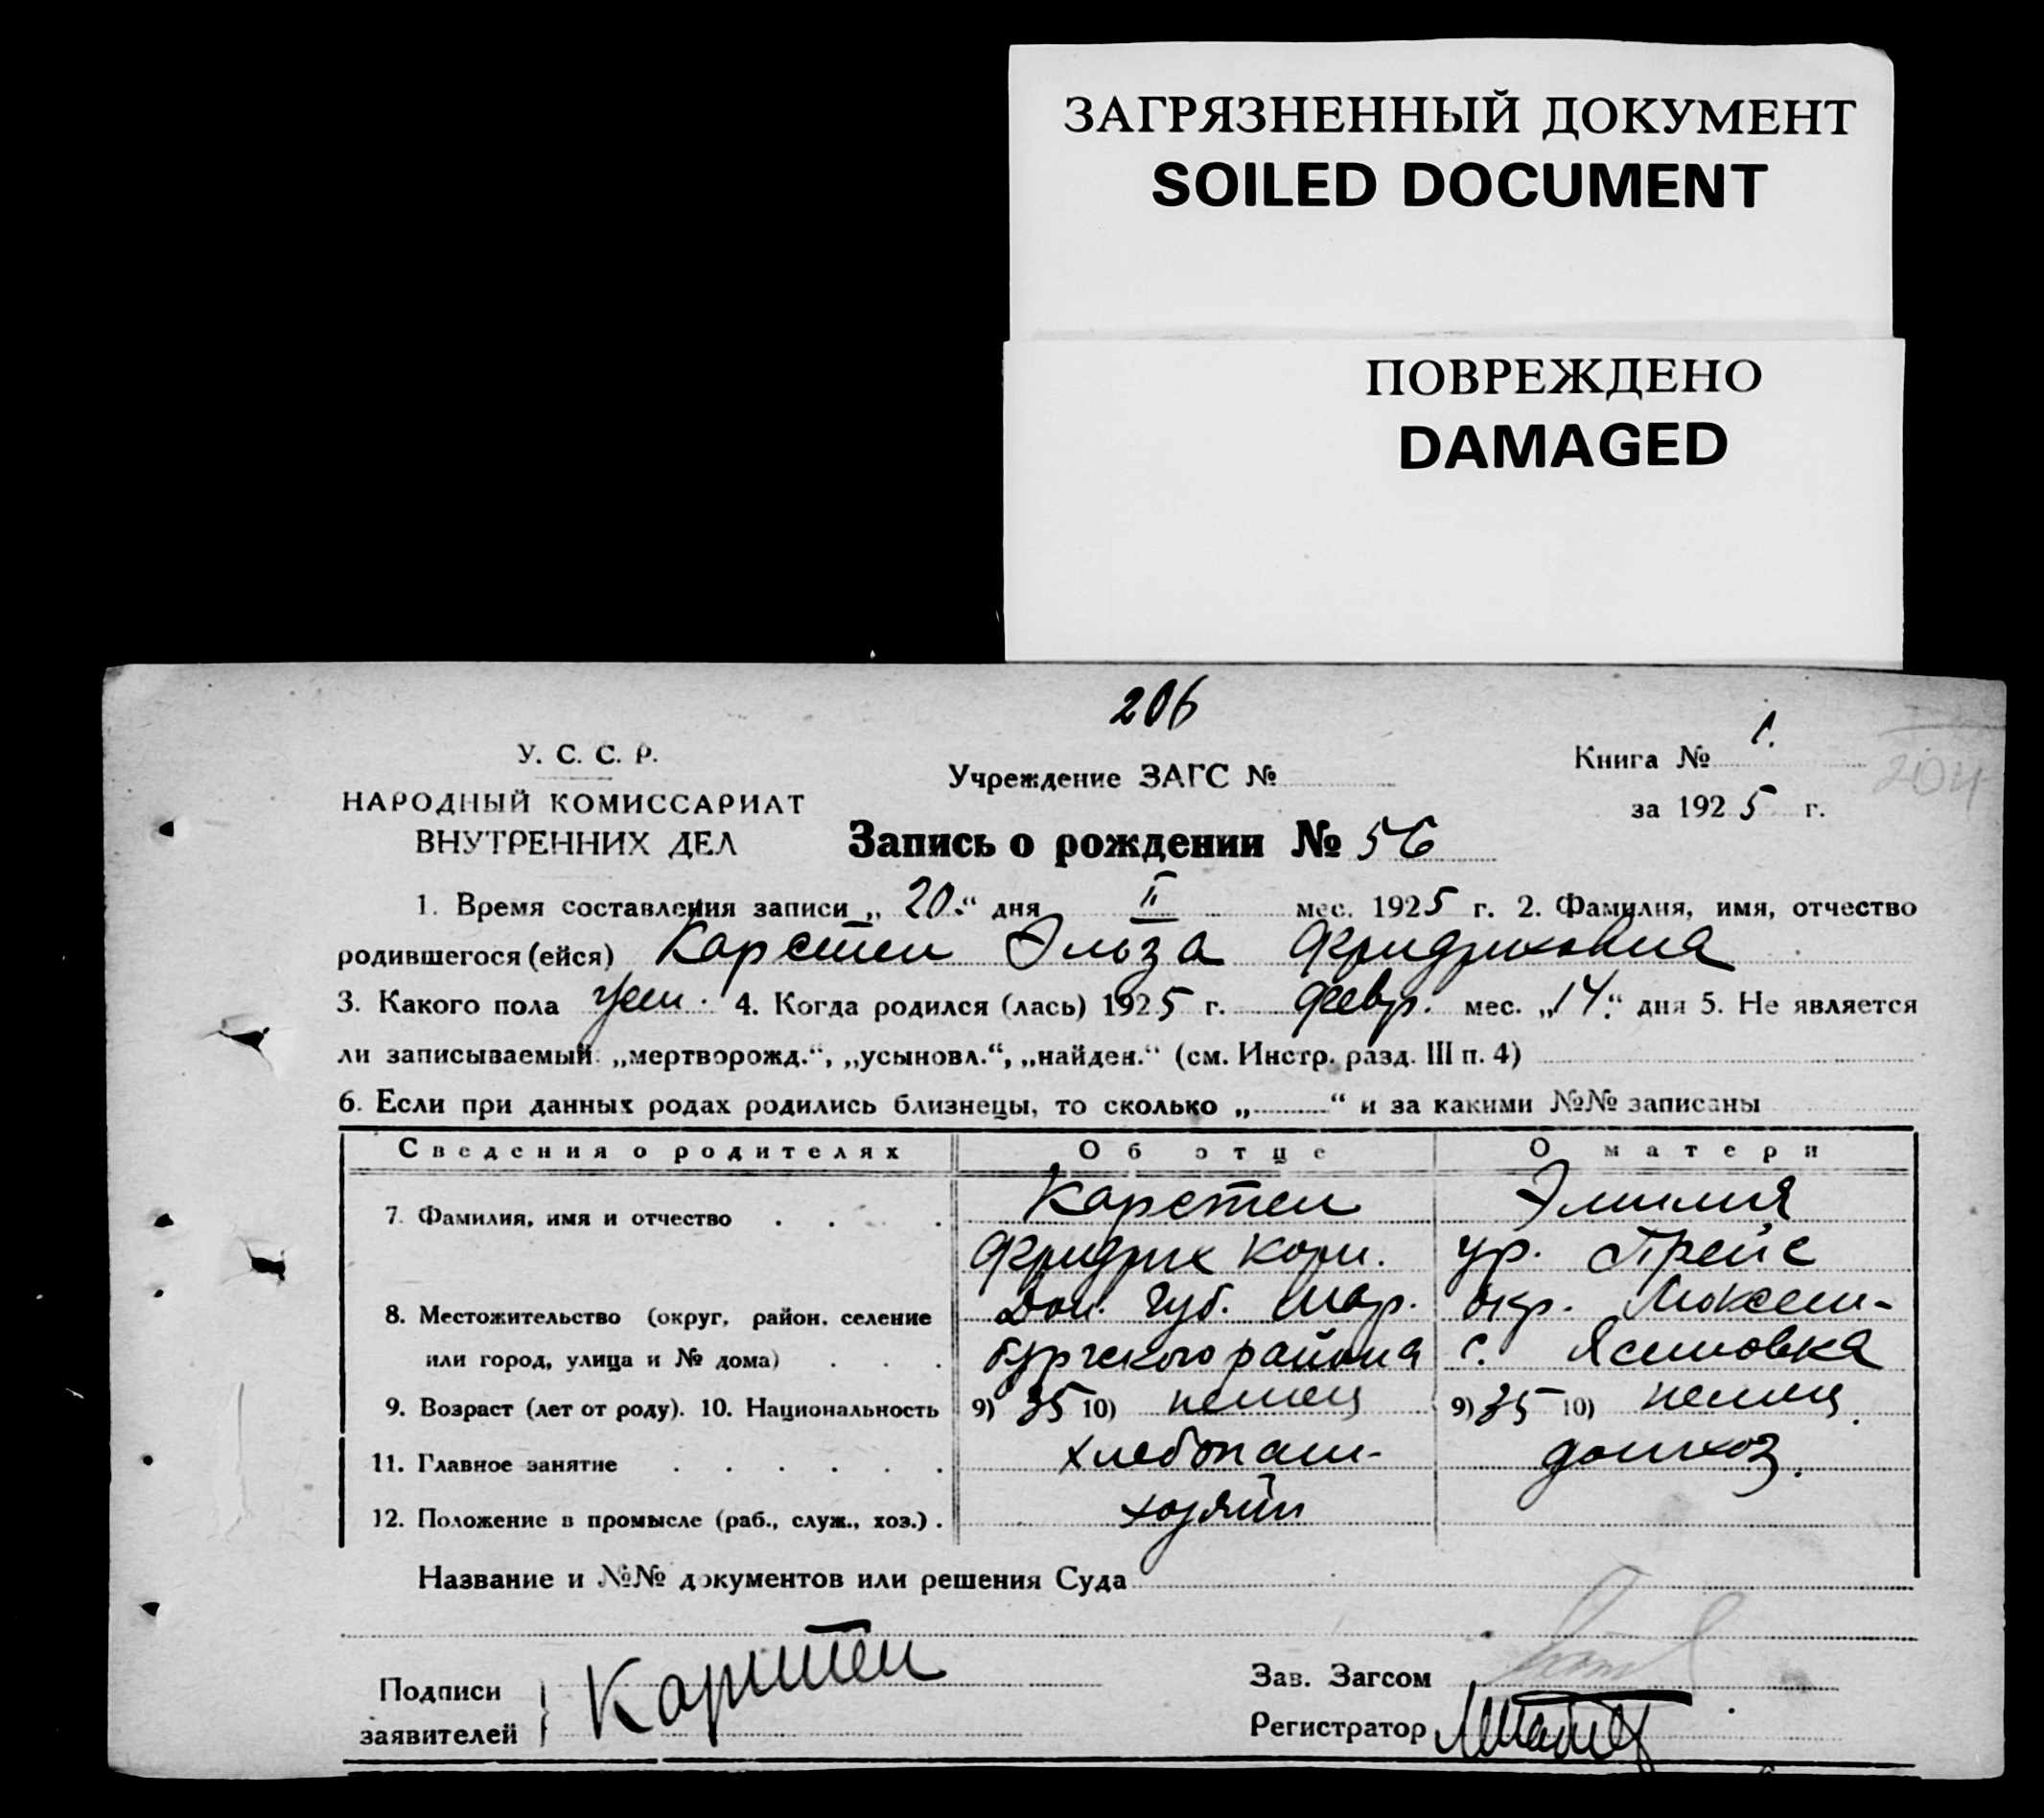 ЗАГРЯЗНЕННЫЙ ДОКУМЕНТ
SOILED DOCUMENT
ПОВРЕЖДЕНО
DAMAGED
206
У. С. С. Р.
НАРОДНЫЙ КОМИССАРИАТ
ВНУТРЕННИХ ДЕЛ
Учреждение ЗАГС №
Книга № 1.
за 1925 г.
204
Запись о рождении № 56
1. Время составления записи „20.“ дня II мес. 1925 г. 2. Фамилия, имя, отчество
родившегося (ейся) Карстен Эльза Фридриховна
3. Какого пола жен. 4. Когда родился (лась) 1925 г. февр. мес. „14.“ дня 5. Не является
ли записываемый: „мертворожд.“, „усыновл.“, „найден.“ (см. Инстр. разд. III п. 4)
6. Если при данных родах родились близнецы, то сколько „..........“ и за какими №№ записаны
Сведения о родителях Об отце О матери
7. Фамилия, имя и отчество Карстен Эмилия
Фридрих ур. Прейс
8. Местожительство (округ, район, селение Дон. губ. Мар. окр. Люксем-
или город, улица и № дома) бургского района с. Ясиновка
9. Возраст (лет от роду). 10. Национальность 9) 35 10) немец 9) 35 10) немец.
11. Главное занятие хлебопаш- домхоз.
12. Положение в промысле (раб., служ., хоз.) хозяин
Название и №№ документов или решения Суда
Подписи
заявителей
Карштен
Зав. Загсом
Регистратор